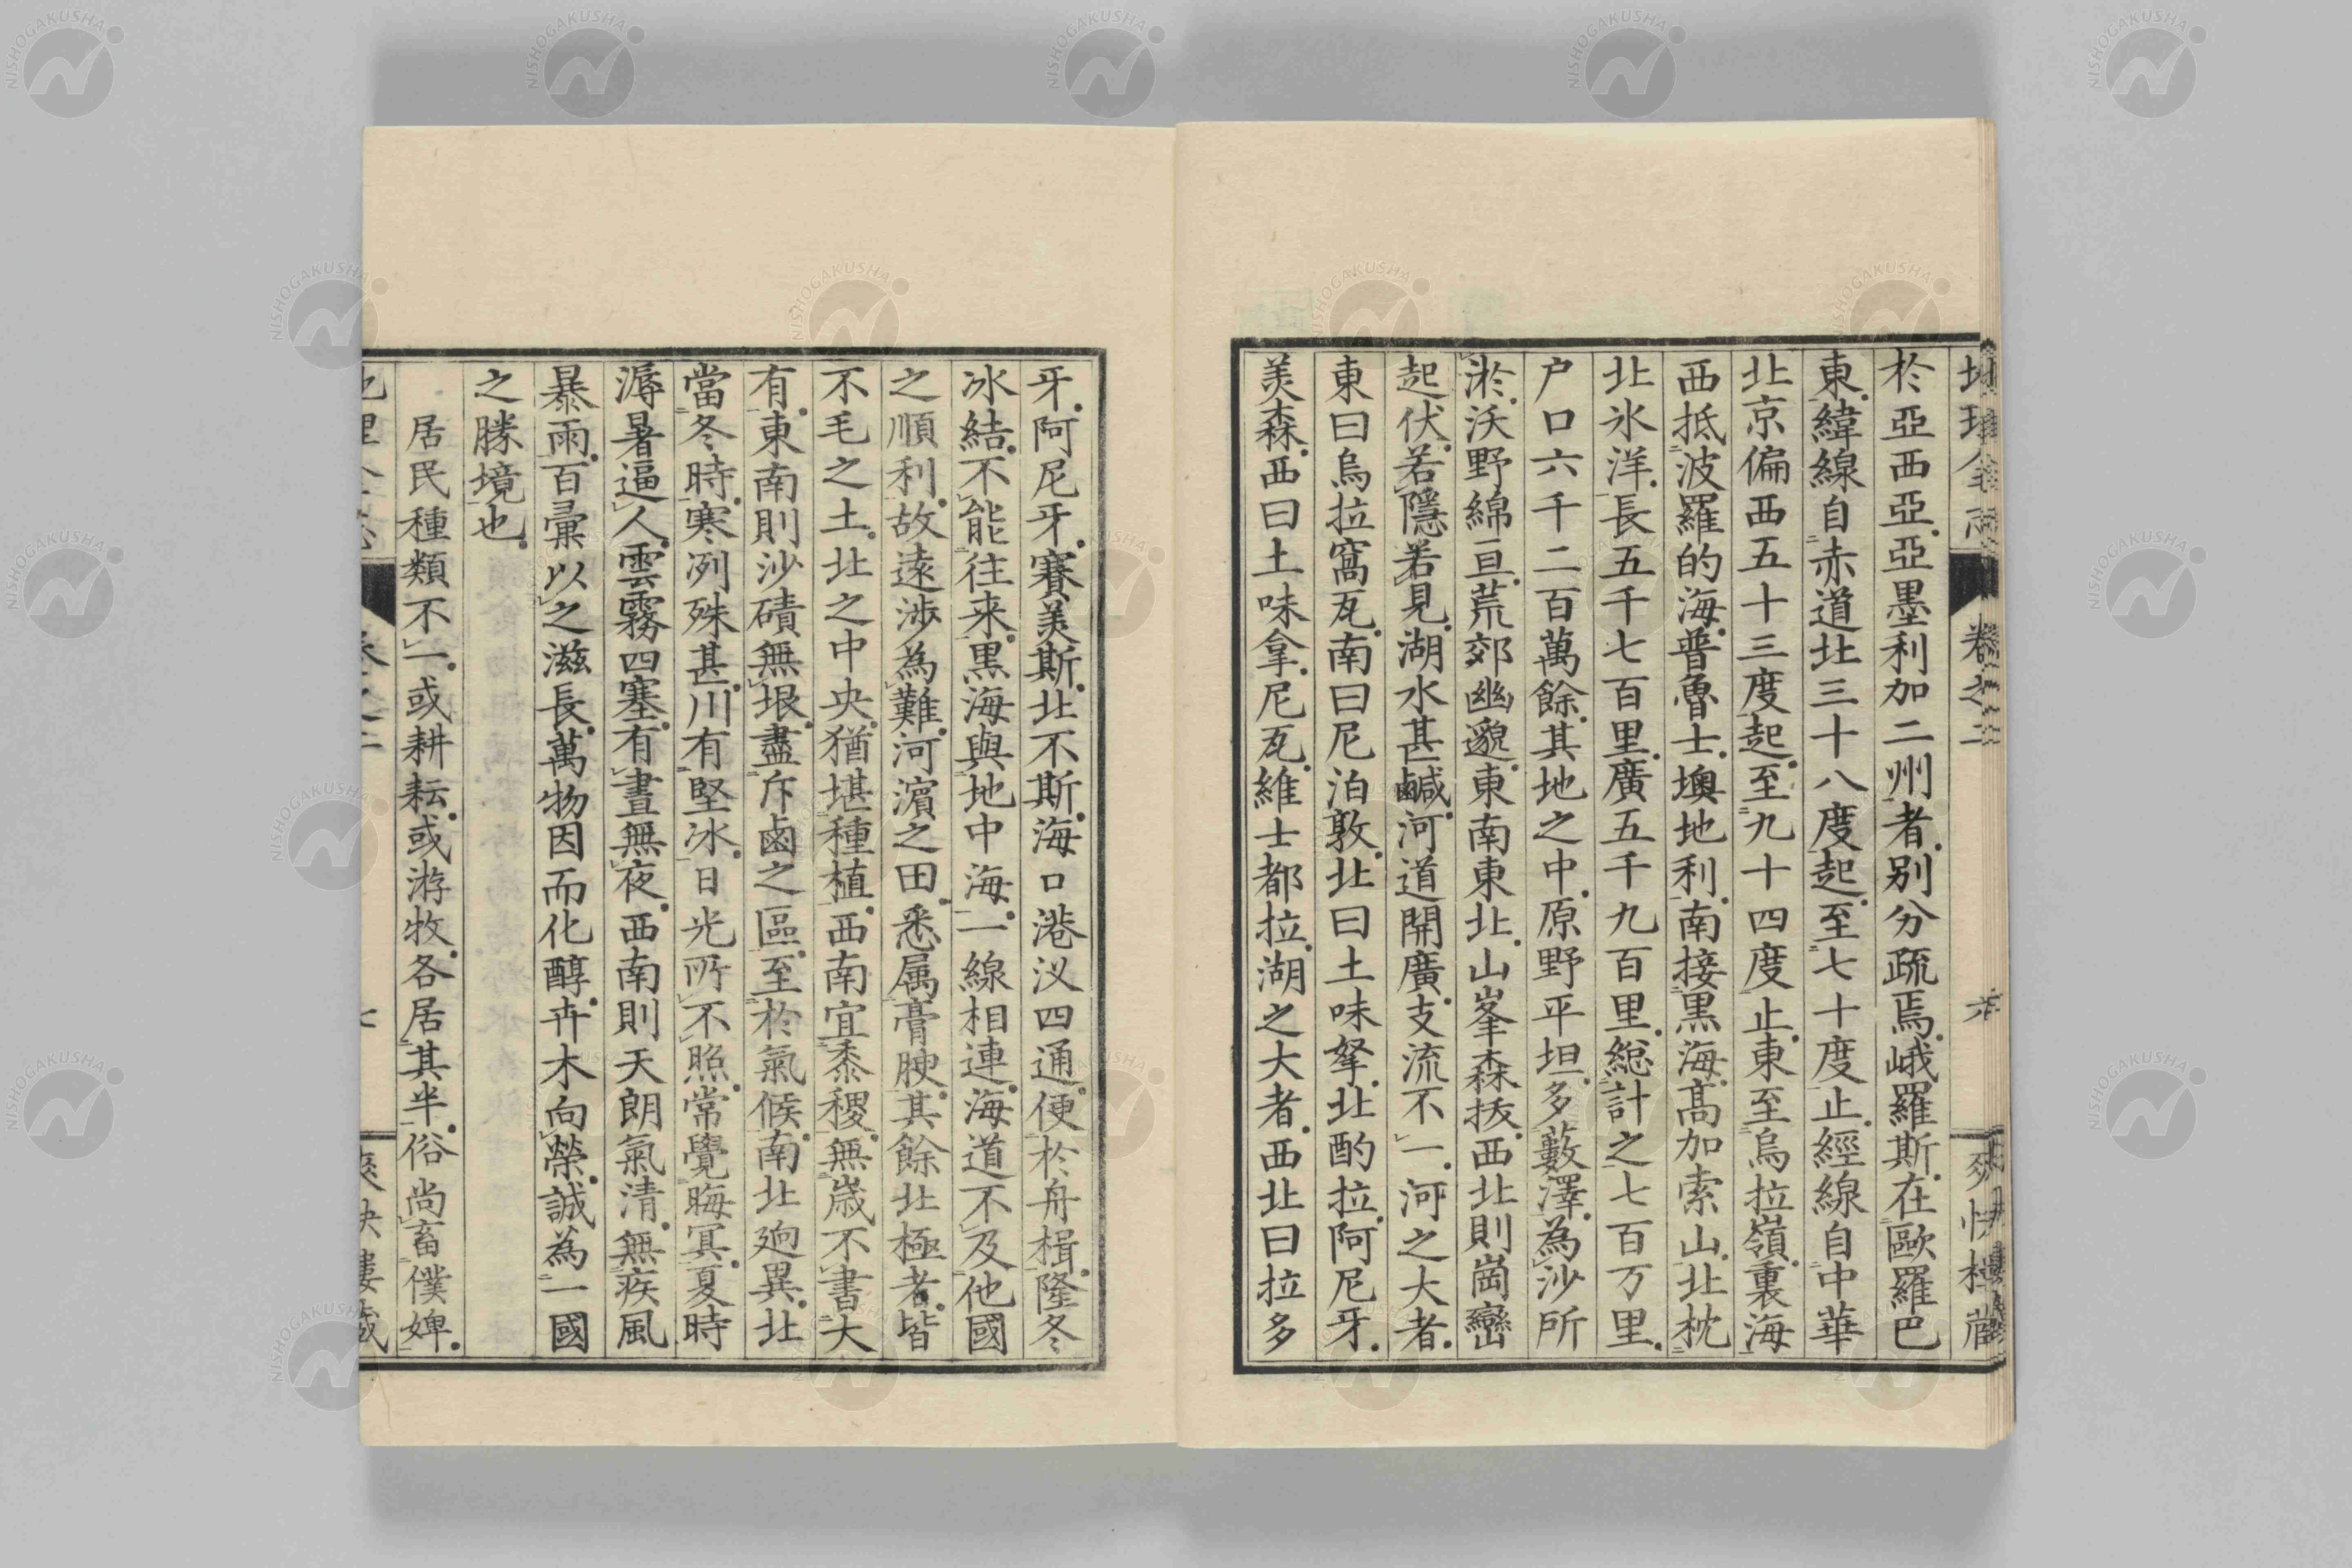 於亞西亞亞墨利加二州者別分疏焉峨羅斯在歐羅巴
東緯線自赤道北三十八度起至七十度止經線自中華
北京偏西五十三度起至九十四度止東至烏拉嶺裏海
西抵波羅的海普魯士墺地利南接黑海高加索山北枕
北氷洋長五千七百里廣五千九百里総計之七百万里
户口六千二百萬餘其地之中原野平坦多藪澤為沙所
淤沃野綿亘荒郊幽邈東南東北山峯森抜西北則崗巒
起伏若隱若見湖水甚鹹河道開廣支流不一河之大者
東曰烏拉窩瓦南曰尼泊敦北曰土味拏北酌拉阿尼牙
美森西曰土味拿尼瓦維士都拉湖之大者西北曰拉多
牙阿尼牙賽美斯北不斯海口港汊四通便於舟楫隆冬
冰結不能往来黒海與地中海一線相連海道不及他國
之順利故遠涉為難河濵之田悉属膏腴其餘北極者皆
不毛之土北之中央猶堪種植西南宜黍稷無嵗不書大
有東南則沙磧無垠盡斥鹵之區至於氣候南北逈異北
當冬時寒冽殊甚川有堅冰日光所不照常覺晦冥夏時
溽暑逼人雲霧四塞有晝無夜西南則天朗氣清無疾風
暴雨百彙以之滋長萬物因而化醇卉木向榮誠為一國
之勝境也
居民種類不一或耕耘或游牧各居其半俗尚畜僕婢